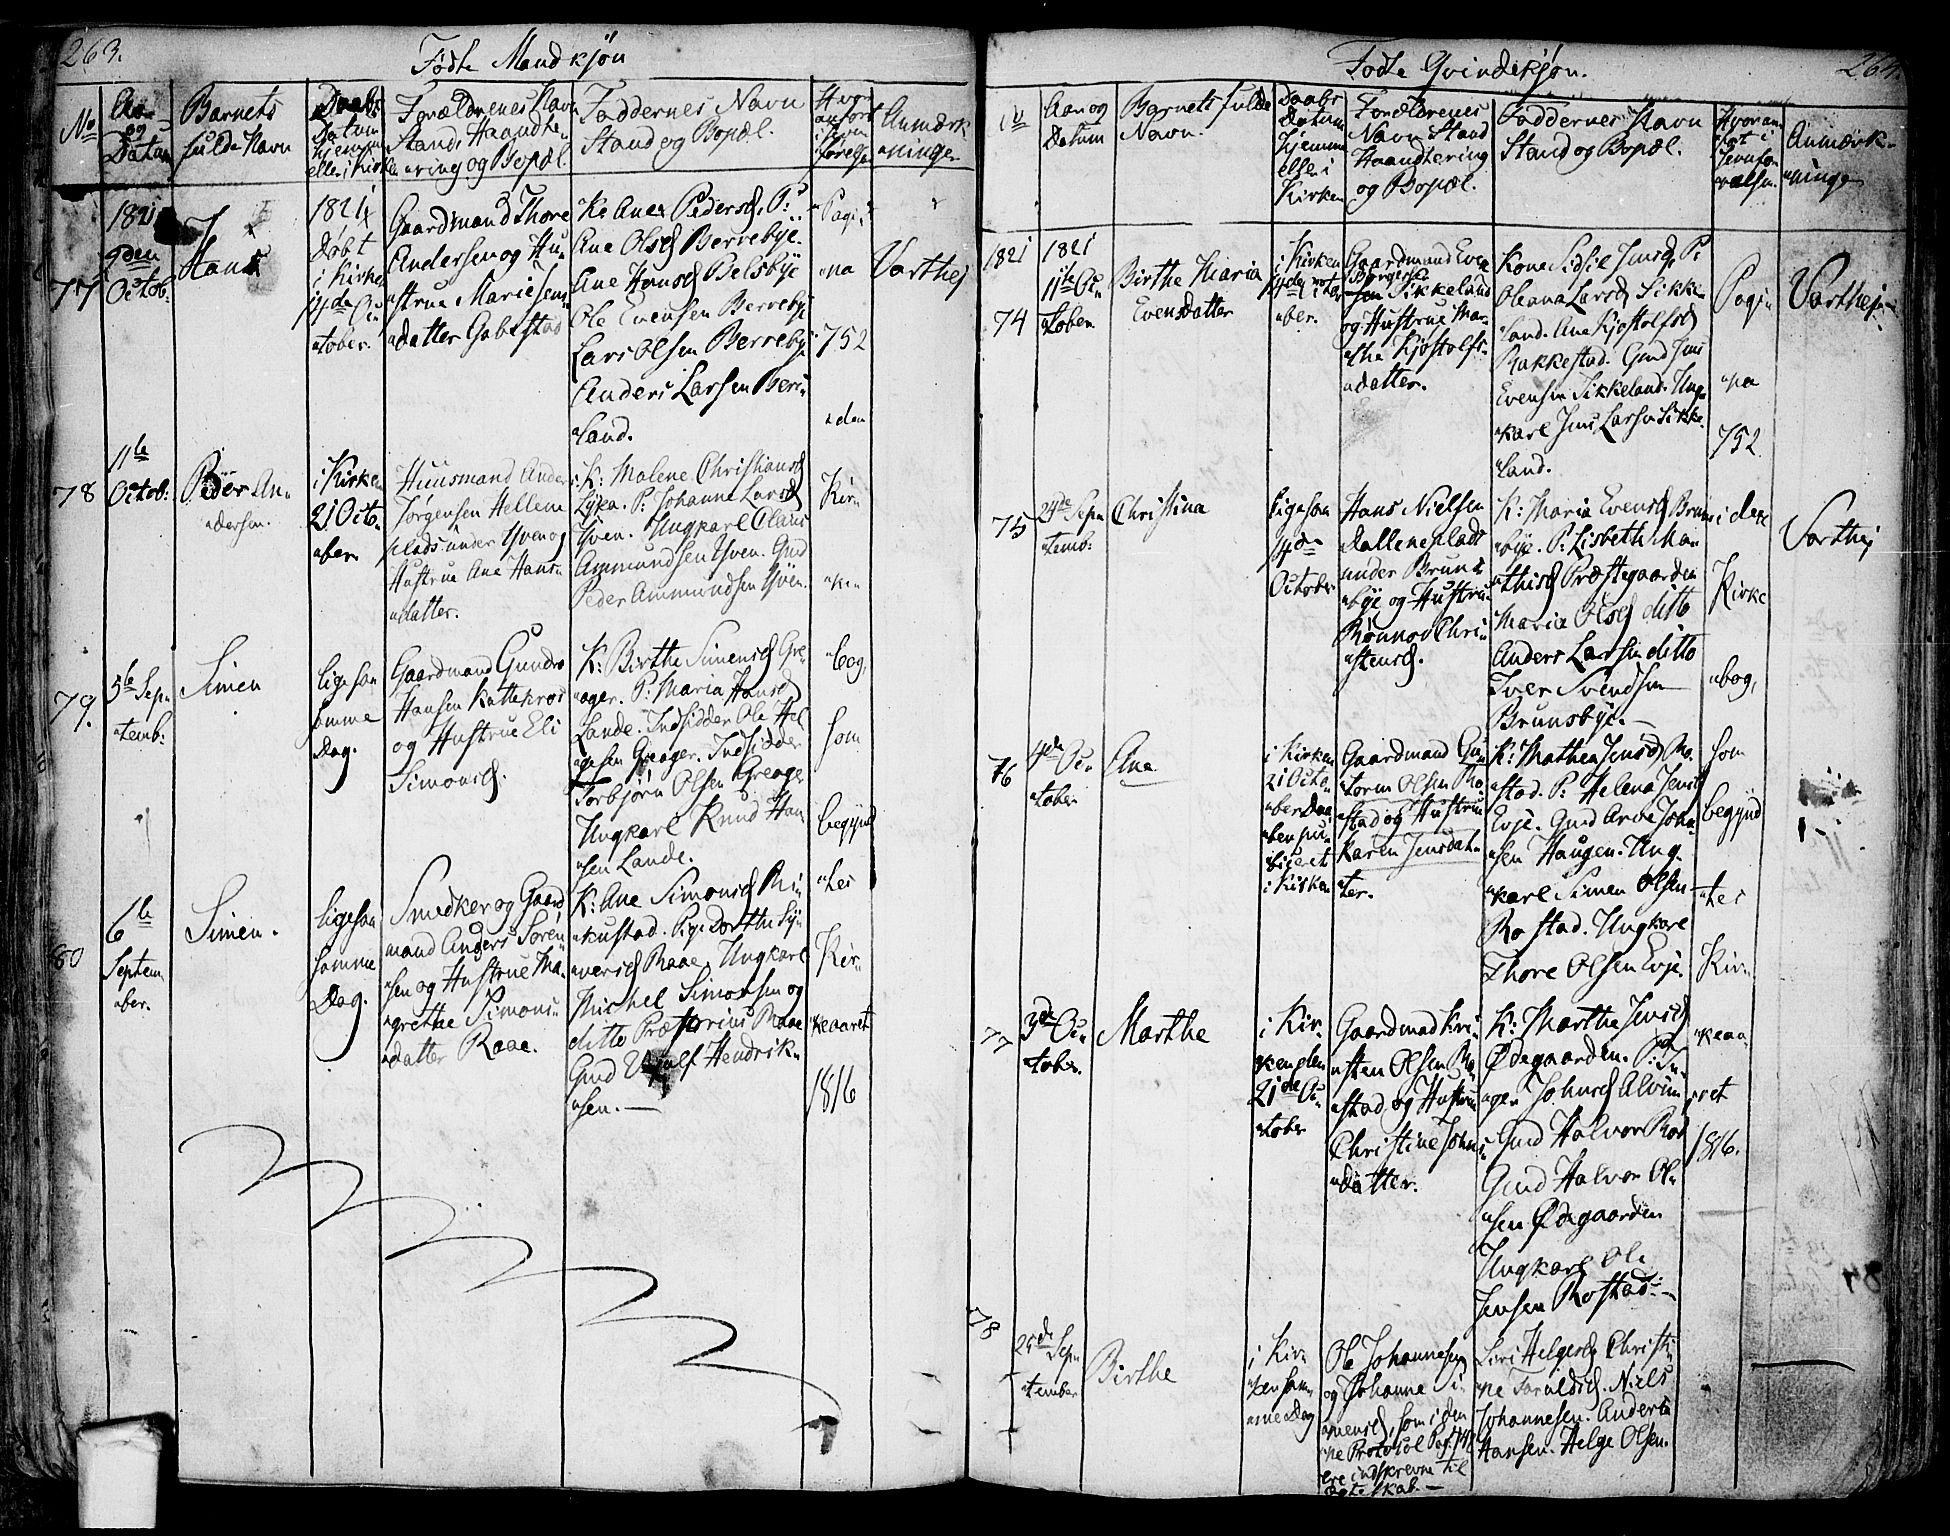 263.
Födte Mandkjön
No
Aar og Datum
Barnets fulde Navn
Daabs Datum hjemme eller i Kirken
Forældrenes Navn Stand, Haandte"
"ring og Bopæl.
Faddernes Navn
Stand og Bopæl.
Anmærk
"ninger
77
1821
9den
Octob:
Hans
1821
Döbt
i Kirken
14de Oc"
"tober.
Gaardmand Thore
Andersen og Hu"
"strue Marie Jens"
"datter Gabestad
Ane Olsd Berrebye.
Ole Evensen Berrebye
Lars Olsen Berrebye
Anders Larsen Ber"
"land.
Pagi"
"na
752
"den
Varthej
78
11te
Octob:
Peder An"
"dersen.
i Kirken
21 Octo"
"ber.
Huusmand Anders
Jørgensen Hellem
plads under Hven og
Hustrue Ane Hans"
"datter.
K: Malene Christiansd
P: Johanne Larsd
Hven. Ungkarl Claus
Ammundsen Hven. Gmd
Peder Ammundsen Hven.
Kir"
"ke"
79.
5te Sep"
"temb:
Simen
ligesaa
samme
Dag.
Gaardmand Gunder
Hansen Kattekros
og Hustrue Eli
Simonsd.
K: Birthe Simensd Gre"
"ager. P: Maria Hansd
Lande. Indsidder Ole Hel"
"gesen Greager. Indsidder
Torbjörn Olsen Greager
Ungkarl Knud Han"
"sen Lande.
"bog,
som
begynd
80
6te
Septem"
"ber.
Simen.
ligesaa
samme
Dag.
Snedker og Gaard
mand Anders Sören"
"sen og Hustrue Ma"
"grethe Simons"
"datter Raae.
K: Ane Simonsd
"kustad. Pige Dorthe Sy"
"versd Raae. Ungkarl
Michel Simonsen og
ditto Prætorius Raae
Gmd Hendrik"
"sen.—
"tes
Kir"
"keaaret
1816
264.
Födte Qvindekjön.
Aar og
Datum
Barnets fulde
Navn.
Daabs
Datum
hjemme
eller i
Kirken
Forældrenes
Navn Stand
Haandtering
og Bopæl.
Faddernes Navn
Stand og Bopæl.
Anmærk"
"ninger
1821
74
1821
11te Oc"
"tober
Birthe Maria
Evensdatter
i Kirken
"ber.
Gaardmand Even
Sikkeland
og Hustrue Mar"
"the Kjöstolfs"
"datter.
Kone Sidsil Jensd, P:
Oleana Larsd Sikke"
"land. Ane Kjöstolfsd
Rakkestad. Gmd Jens
Evensen Sikkeland. Ung"
"karl Jens Larsen Sikke"
"land.
Pagi"
"na
752
Varthej
75
24de Sep"
"temb:
Christina
ligesaa
14de
October
Hans Nielsen
Dalleneplads
under Bruns"
"bye og Hustrue
Rönnov Chri"
"stensd.
K: Maria Evensd Bruns"
"bye. P: Lisbeth Ma"
"thisd Præstegaarden
Maria Olsd ditto
Anders Larsen ditto
Iver Svendsen
Brunsbye.—
i den
Kirke
"bog,
Varthej
76
4de Oc"
"tober
Ane
i Kirken
21 Octo"
"ber Daa"
"ben pu"
"bliceret
i Kirken
Gaardmand Gu"
"torm Olsen Ro"
"stad og Hustrue
Karen Jensdat"
"ter.
K: Mathea Jensd Ro"
"stad. P: Helena Jensd
Evje. Gmd Arve Joha"
"sen Haugen. Ung"
"karl Simen Olsen
Rostad. Ungkarl
Thore Olsen Evje.
som
begynd
"tes
Kir"
77
3de Oc"
"tober.
Marthe
i Kir"
"ken den
21de Oc"
"tober
Gaardmand Kri"
"sten Olsen Ro"
"stad og Hustrue
Christine Johns"
"datter.
K: Marthe Jensd
Ødegaarden. P: In"
"ger Johnsd Alvim
Gmd Halvor Rod
Gmd Halvor Ol"
"sen Ødegaarden
Ungkarl Ole
Jensen Rostad.—
"keaa"
"ret
1816.
78
25de Sep"
"tember
Birthe
i Kir"
"ken sam"
"me Dag
Ole Johannesen
og Johanne Si"
"mensd, som i den
"ne Protocol Pag. 747
ere indskrevne til
Ægteskab.—
Siri Helgesd Christi"
"ne Taraldsd. Niels
Johannesen. Anders
Hansen. Helge Olsen.